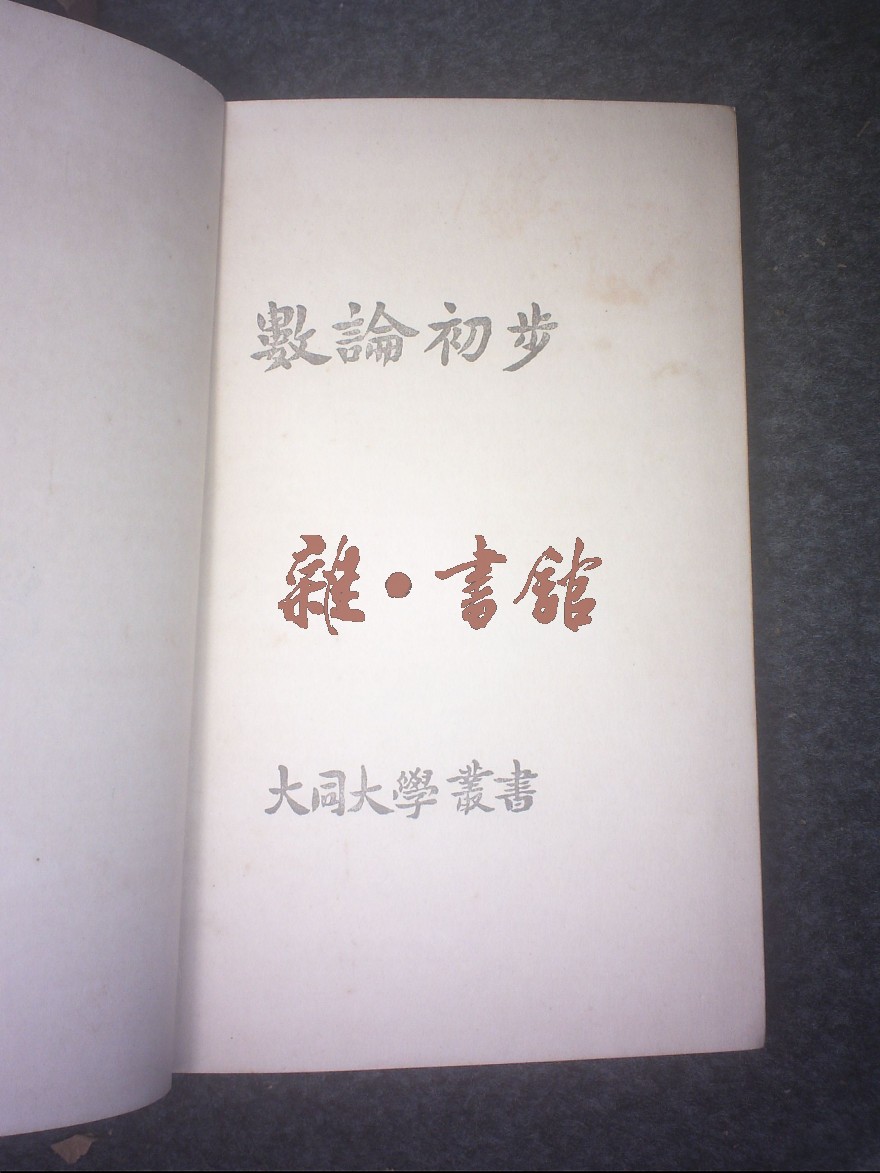 數論初步
雜·書館
大同大學叢書